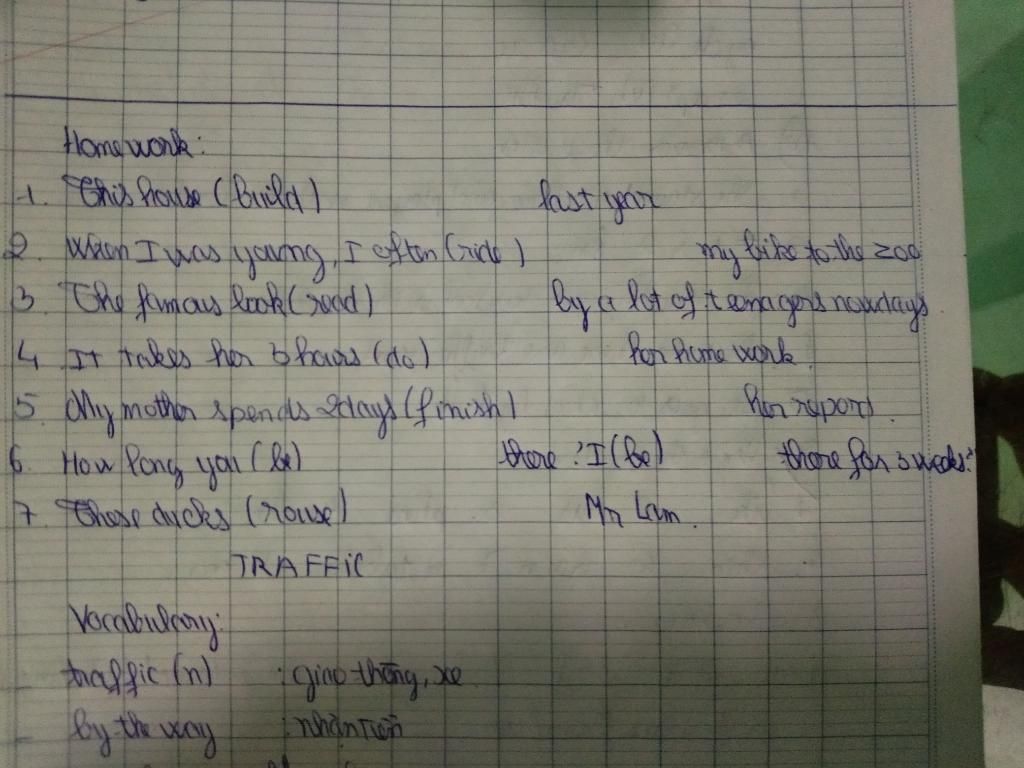 Homework:
1. This house (build) last year
2. When I was young, I often (ride) my bike to the zoo
3. The famous book (read) by a lot of teenagers nowdays.
4. It takes her 3 hours (do) her home work.
5. My mother spends 2 days (finish) her report.
6. How long you (be) there? I (be) there for 3 weeks.
7. These ducks (rouse) Mr Lam.
TRAFFIC
Vocabulary:
- traffic (n) : giao thông, xe
- by the way : nhân tiện